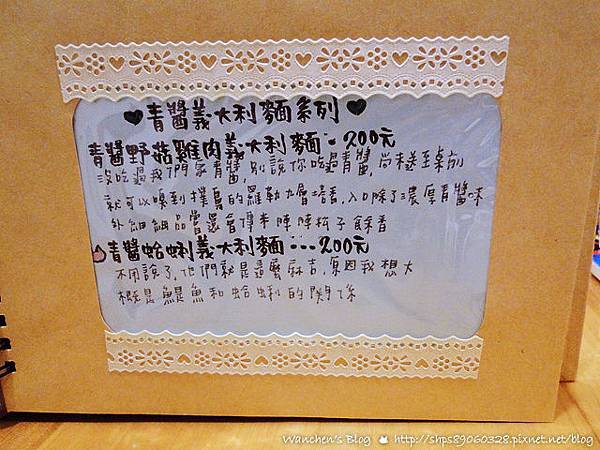 ♥青醬義大利麵系列♥
青醬野菇雞肉義大利麵-200元
沒吃過我們家青醬,別說你吃過青醬,尚未送至桌前
就可以嗅到撲鼻的羅勒九層塔香,入口除了濃厚青醬味
外細細品嘗還會傳來陣陣松子餘香
青醬蛤蜊義大利麵---200元
不用說了,他們就是這麼麻吉,原因我想大
概是鯷魚和蛤蜊的關係
Wanchen's Blog http://shps89060328.pixnet.net/blog